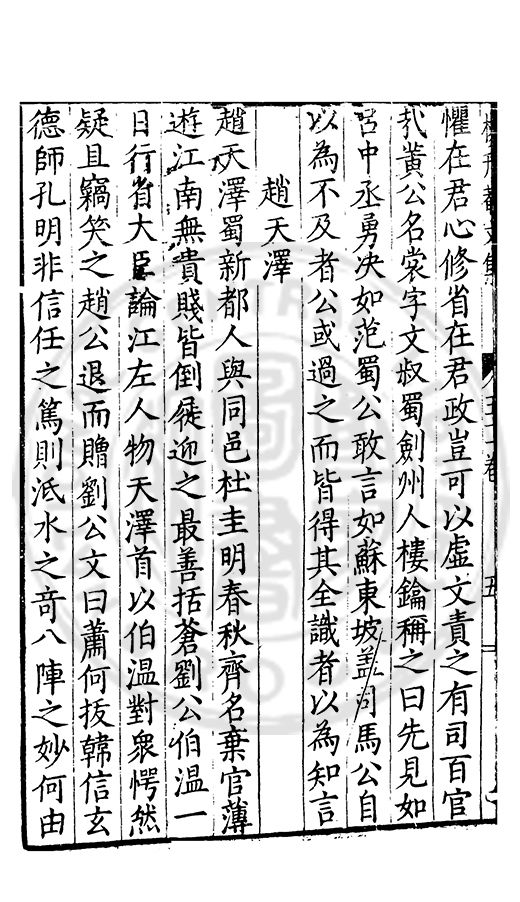 懼在君心修省在君政豈可以虛文責之有司百官
扎黃公名裳字文叔蜀劍州人樓鑰稱之曰先見如
呂中丞勇决如范蜀公敢言如蘇東坡盖司馬公自
以為不及者公或過之而皆得其全識者以為知言
趙天澤
趙天澤蜀新都人與同邑杜圭明春秋齊名棄官薄
遊江南無貴賤皆倒屣迎之最善括蒼劉公伯温一
日行省大臣論江左人物天澤首以伯温對衆愕然
疑且竊笑之趙公退而贈劉公文曰蕭何拔韓信玄
德師孔明非信任之篤則泜水之竒八陣之妙何由
五十卷
五